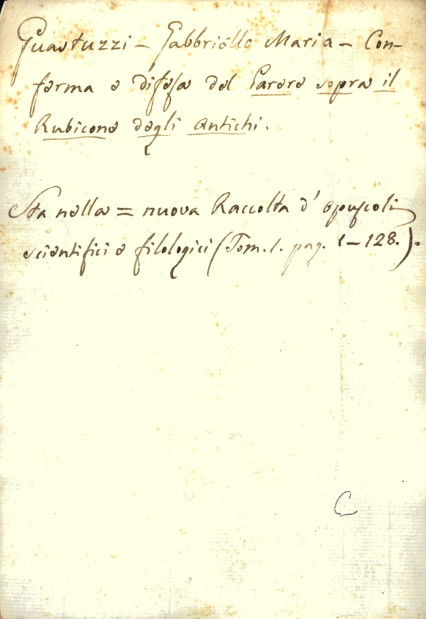 Guastuzzi – Gabbriello Maria – Con-
ferma e difesa del Parere sopra il
Rubicone degli Antichi.
Sta nella = nuova Raccolta d' opuscoli
scientifici e filologici (Tom. 1. pag. 1–128.).
C